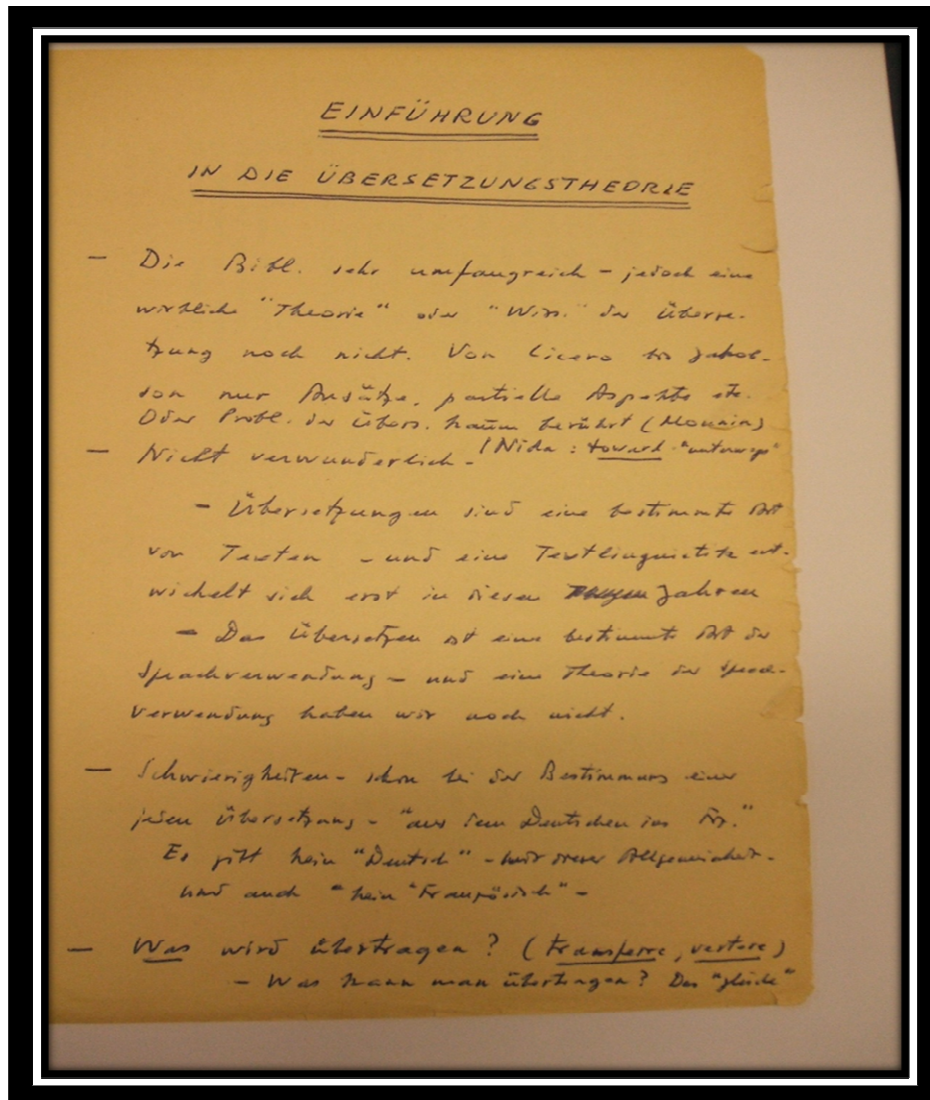 EINFÜHRUNG
IN DIE ÜBERSETZUNGSTHEORIE
– Die Bibl. sehr umfangreich – jedoch eine
wirkliche "Theorie" oder "Wiss." der Überse-
tzung noch nicht. Von Cicero bis Jakob-
son nur Ansätze, partielle Aspekte etc.
Oder Probl. der Übers. kaum berührt (Mounin)
– Nicht verwunderlich – / Nida : toward - "unterwegs"
– Übersetzungen sind eine bestimmte Art
von Texten – und eine Textlinguistik ent-
wickelt sich erst in diesen Jahren
– Das Übersetzen ist eine bestimmte Art der
Sprachverwendung – und eine Theorie der Sprach-
verwendung haben wir noch nicht.
– Schwierigkeiten – schon bei der Bestimmung einer
jeden Übersetzung – "aus dem Deutschen ins Frz."
Es gibt kein "Deutsch" – mit dieser Allgemeinheit –
und auch "kein "Französisch" –
– Was wird übertragen? (transferre, vertere)
– Was kann man übertragen? Das "gleiche"